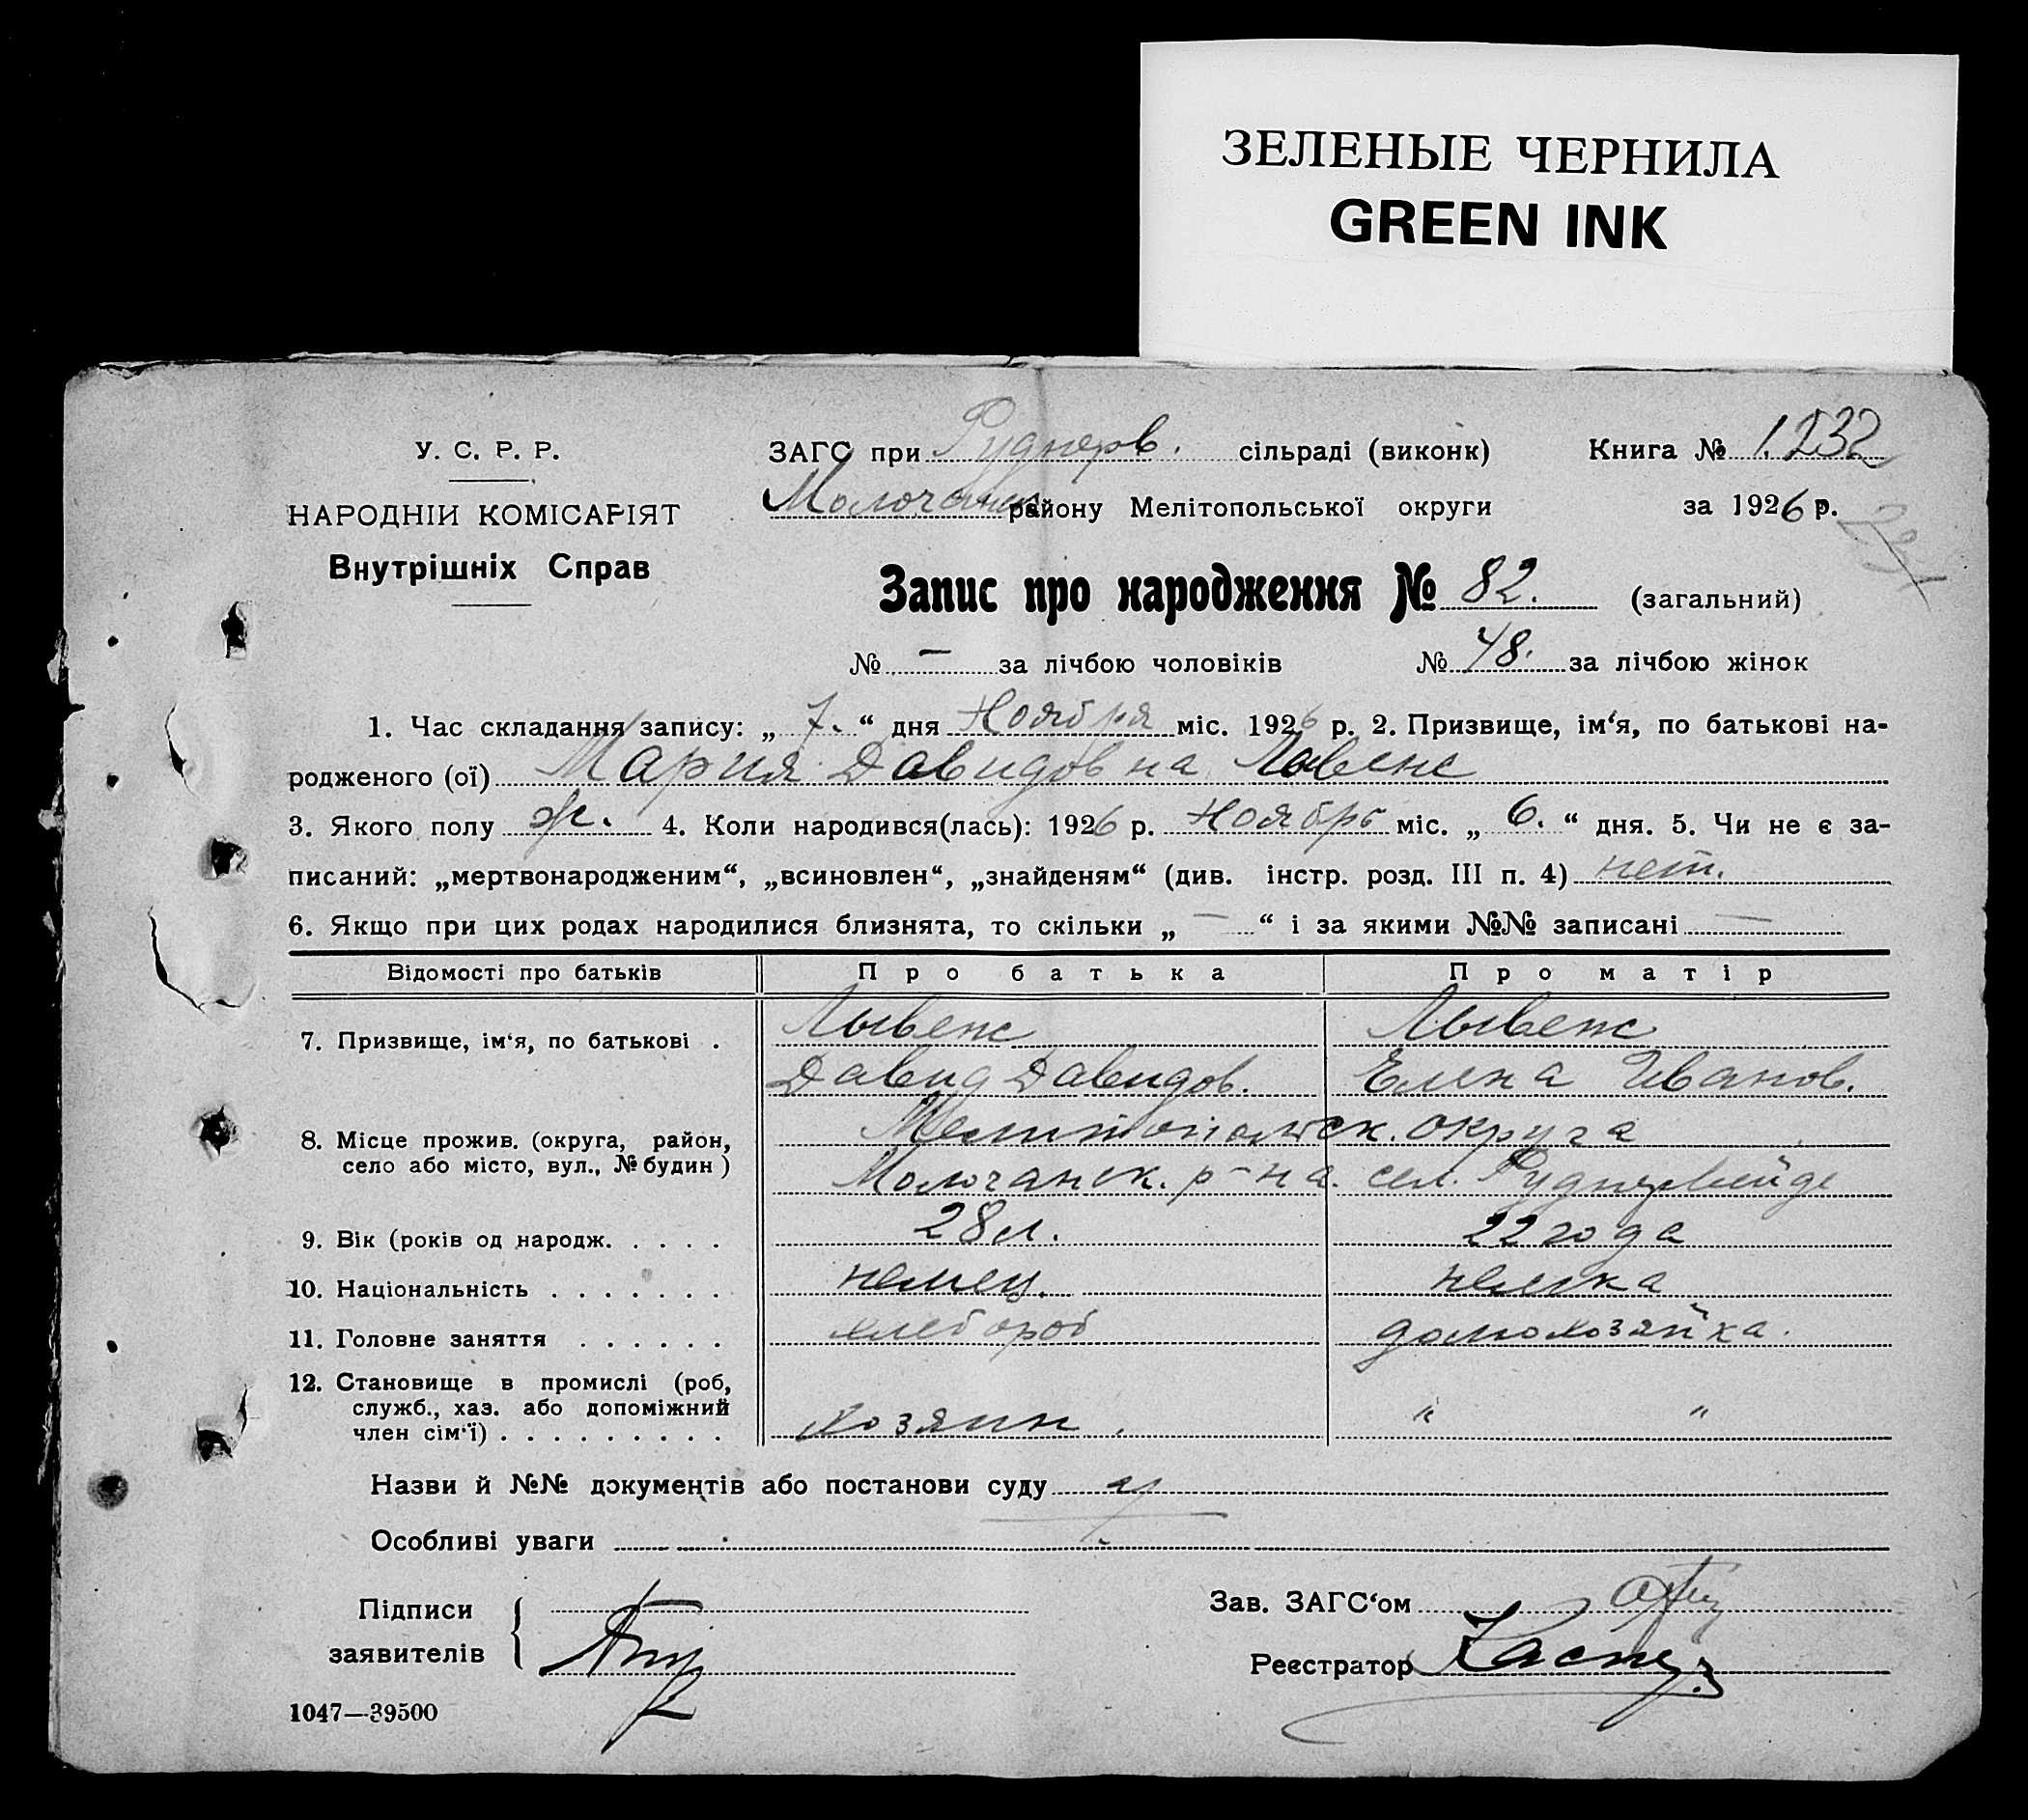 ЗЕЛЕНЫЕ ЧЕРНИЛА
GREEN INK
У. С. Р. Р.
НАРОДНІЙ КОМІСАРІЯТ
Внутрішніх Справ
ЗАГС при Руднерв. сільраді (виконк)
Молочанск району Мелітопольської округи
Книга № 1.232
за 1926 р.
Запис про народження № 82. (загальний)
№ — за лічбою чоловіків № 48. за лічбою жінок
1. Час складання запису: „ 7. “ дня Ноября міс. 1926 р. 2. Призвище, ім‘я, по батькові на-
родженого (ої) Мария Давидовна Лывенс
3. Якого полу ж. 4. Коли народився(лась): 1926 р. Ноябрь міс. „ 6. “ дня. 5. Чи не є за-
писаний: „мертвонародженим“, „всиновлен“, „знайденям“ (див. інстр. розд. III п. 4) нет.
6. Якщо при цих родах народилися близнята, то скільки „ — “ і за якими №№ записані —
Відомості про батьків Про батька Про матір
7. Призвище, ім‘я, по батькові . Лывенс Лывенс
Давид Давидов. Елена Иванов.
8. Місце прожив. (округа, район, село або місто, вул., № будин) Мелитопольск. округа
Молочанск. р-на. сел. Руднервейде
9. Вік (років од народж. . . . . 28 л. 22 года
10. Національність . . . . . . . немец. немка
11. Головне заняття . . . . . . хлебороб домохозяйка.
12. Становище в промислі (роб,
служб., хаз. або допоміжний
член сім‘ї) . . . . . . . . . хозяин. " "
Назви й №№ документів або постанови суду
Особливі уваги
Підписи
заявителів
Зав. ЗАГС‘ом
Реєстратор
1047—39500